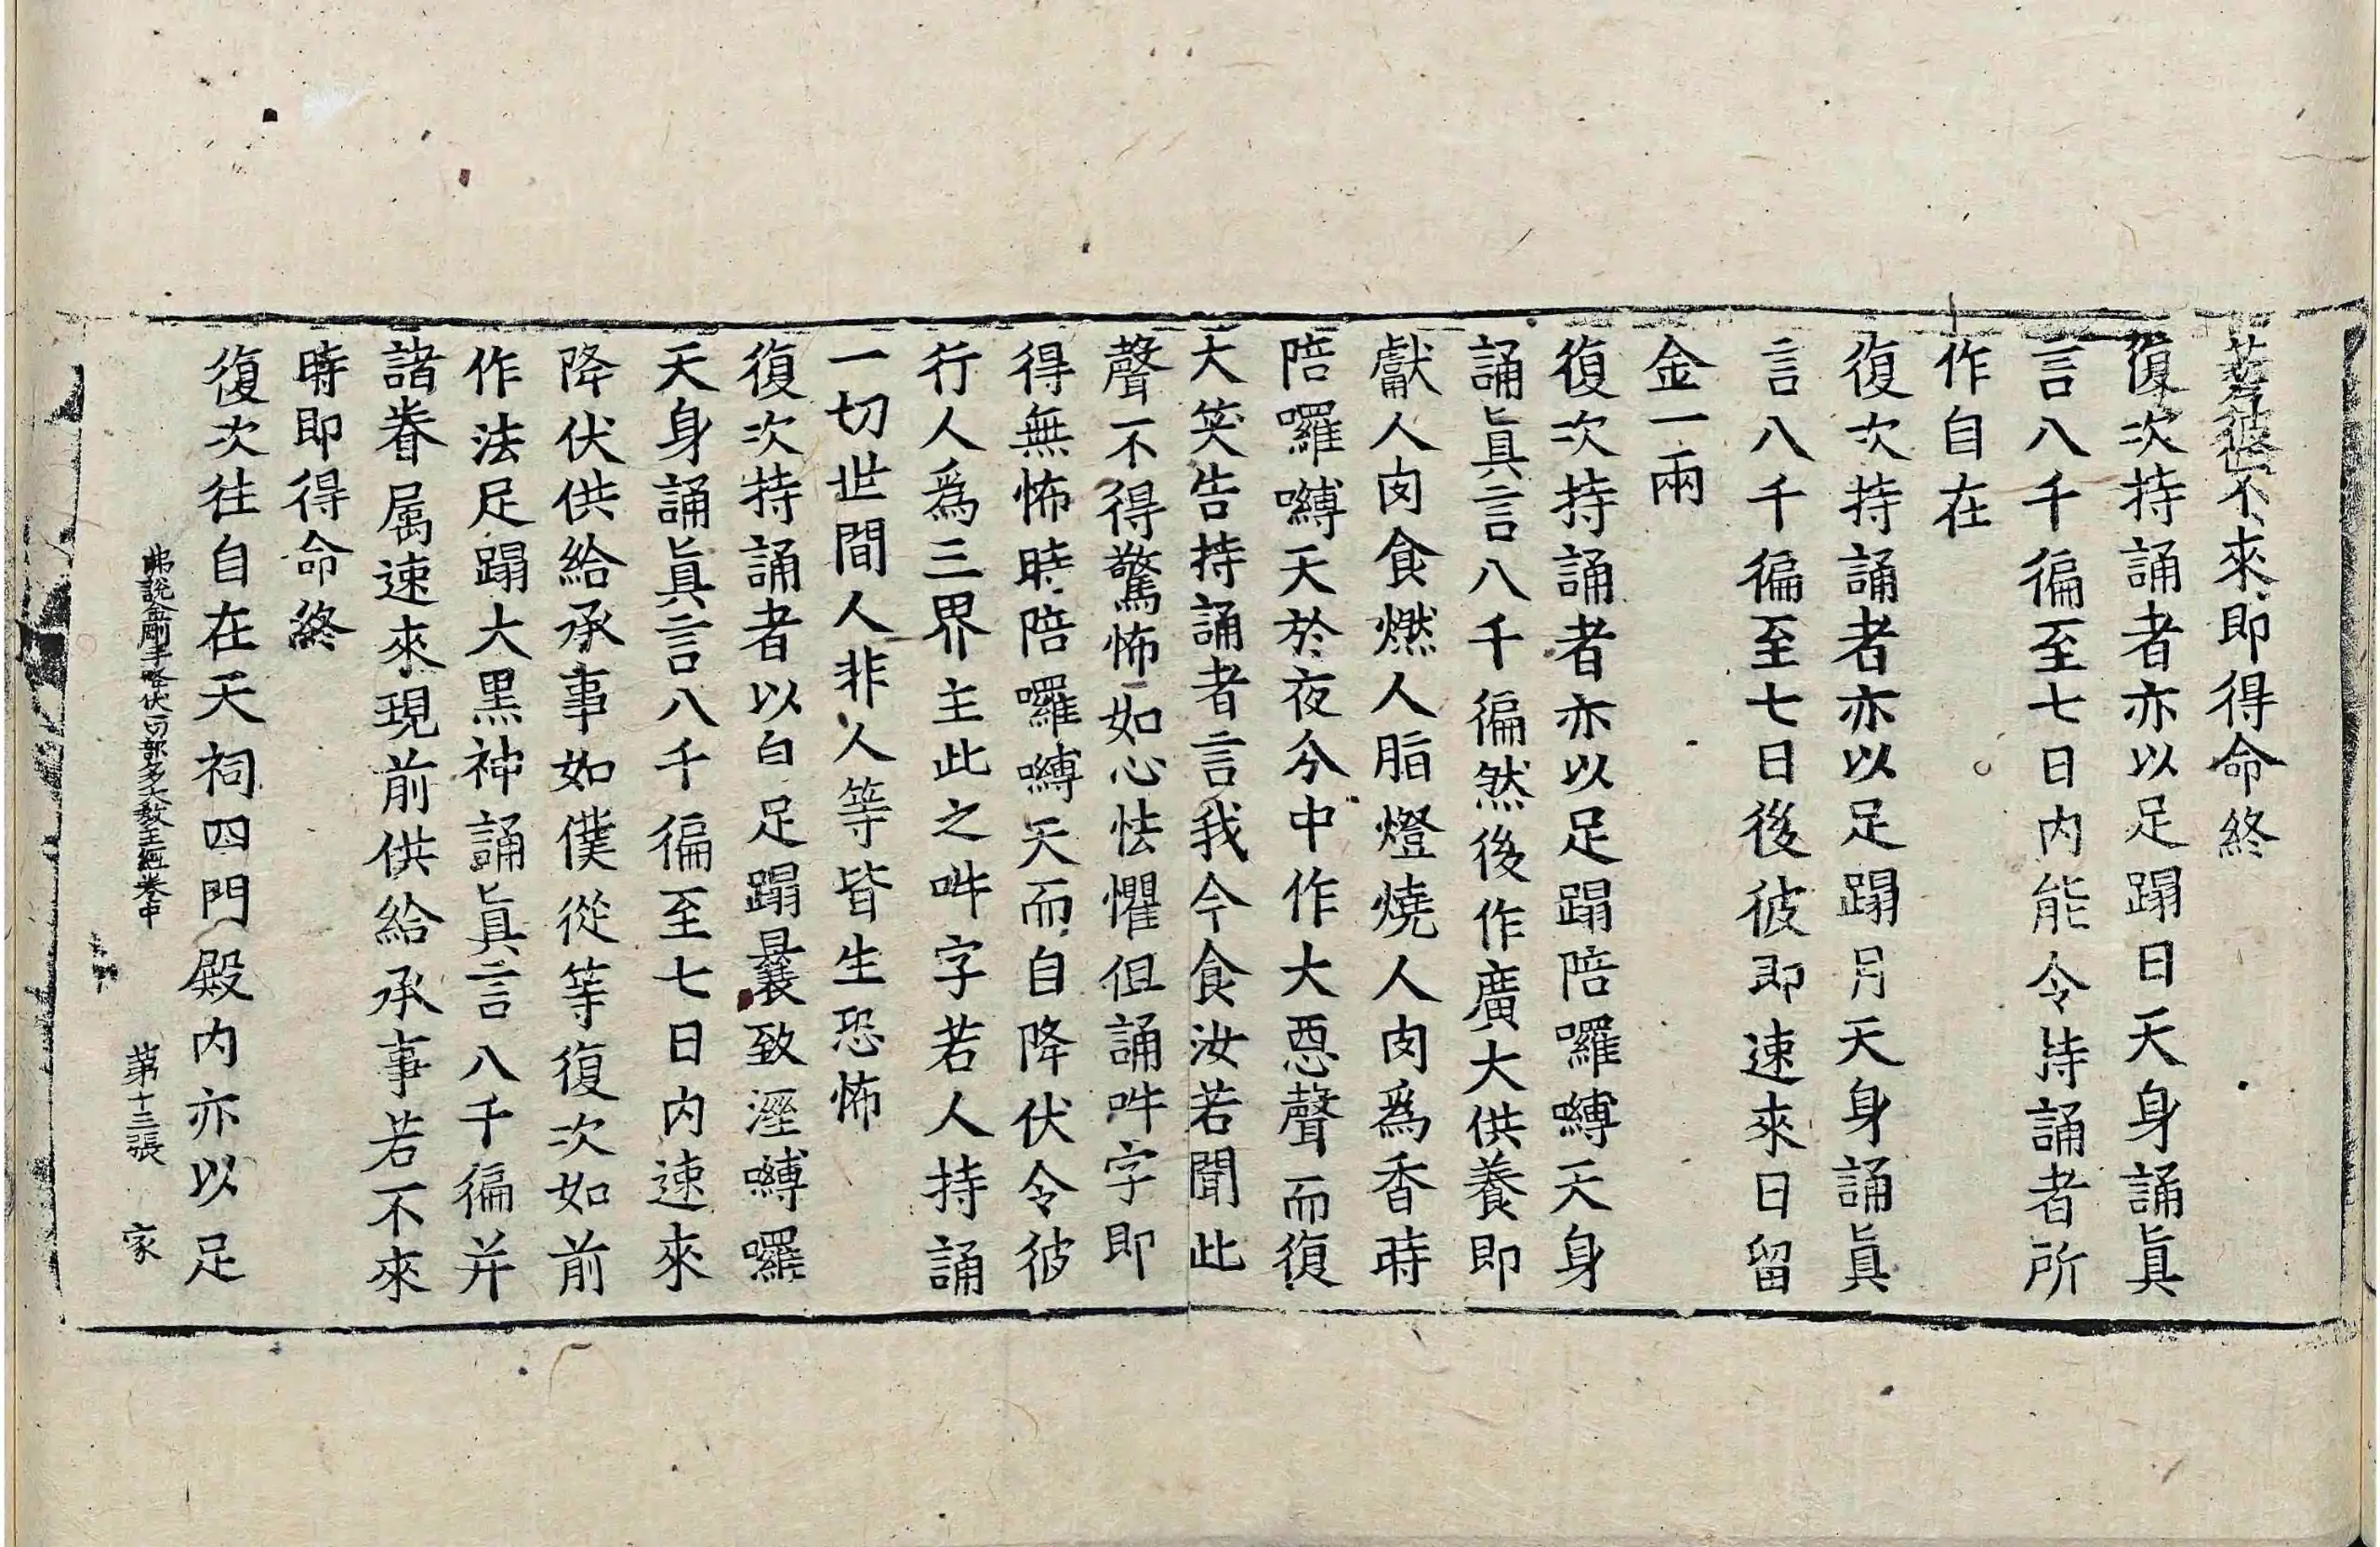 若彼不來即得命終
復次持誦者亦以足蹋日天身誦眞
言八千徧至七日內能令持誦者所
作自在
復次持誦者亦以足蹋月天身誦眞
言八千徧至七日後彼即速來日留
金一兩
復次持誦者亦以足蹋陪囉嚩天身
誦眞言八千徧然後作廣大供養即
獻人肉食燃人脂燈燒人肉爲香時
陪囉嚩天於夜分中作大惡聲而復
大笑告持誦者言我今食汝若聞此
聲不得驚怖如心怯懼但誦吽字即
得無怖時陪囉嚩天而自降伏令彼
行人爲三界主此之吽字若人持誦
一切世間人非人等皆生恐怖
復次持誦者以白足蹋曩致溼嚩囉
天身誦眞言八千徧至七日內速來
降伏供給承事如僕從等復次如前
作法足蹋大黑神誦眞言八千徧并
諸眷屬速來現前供給承事若不來
時即得命終
復次往自在天祠四門殿內亦以足
佛說金剛手降伏一切部多大教王經卷中 第十三張 家